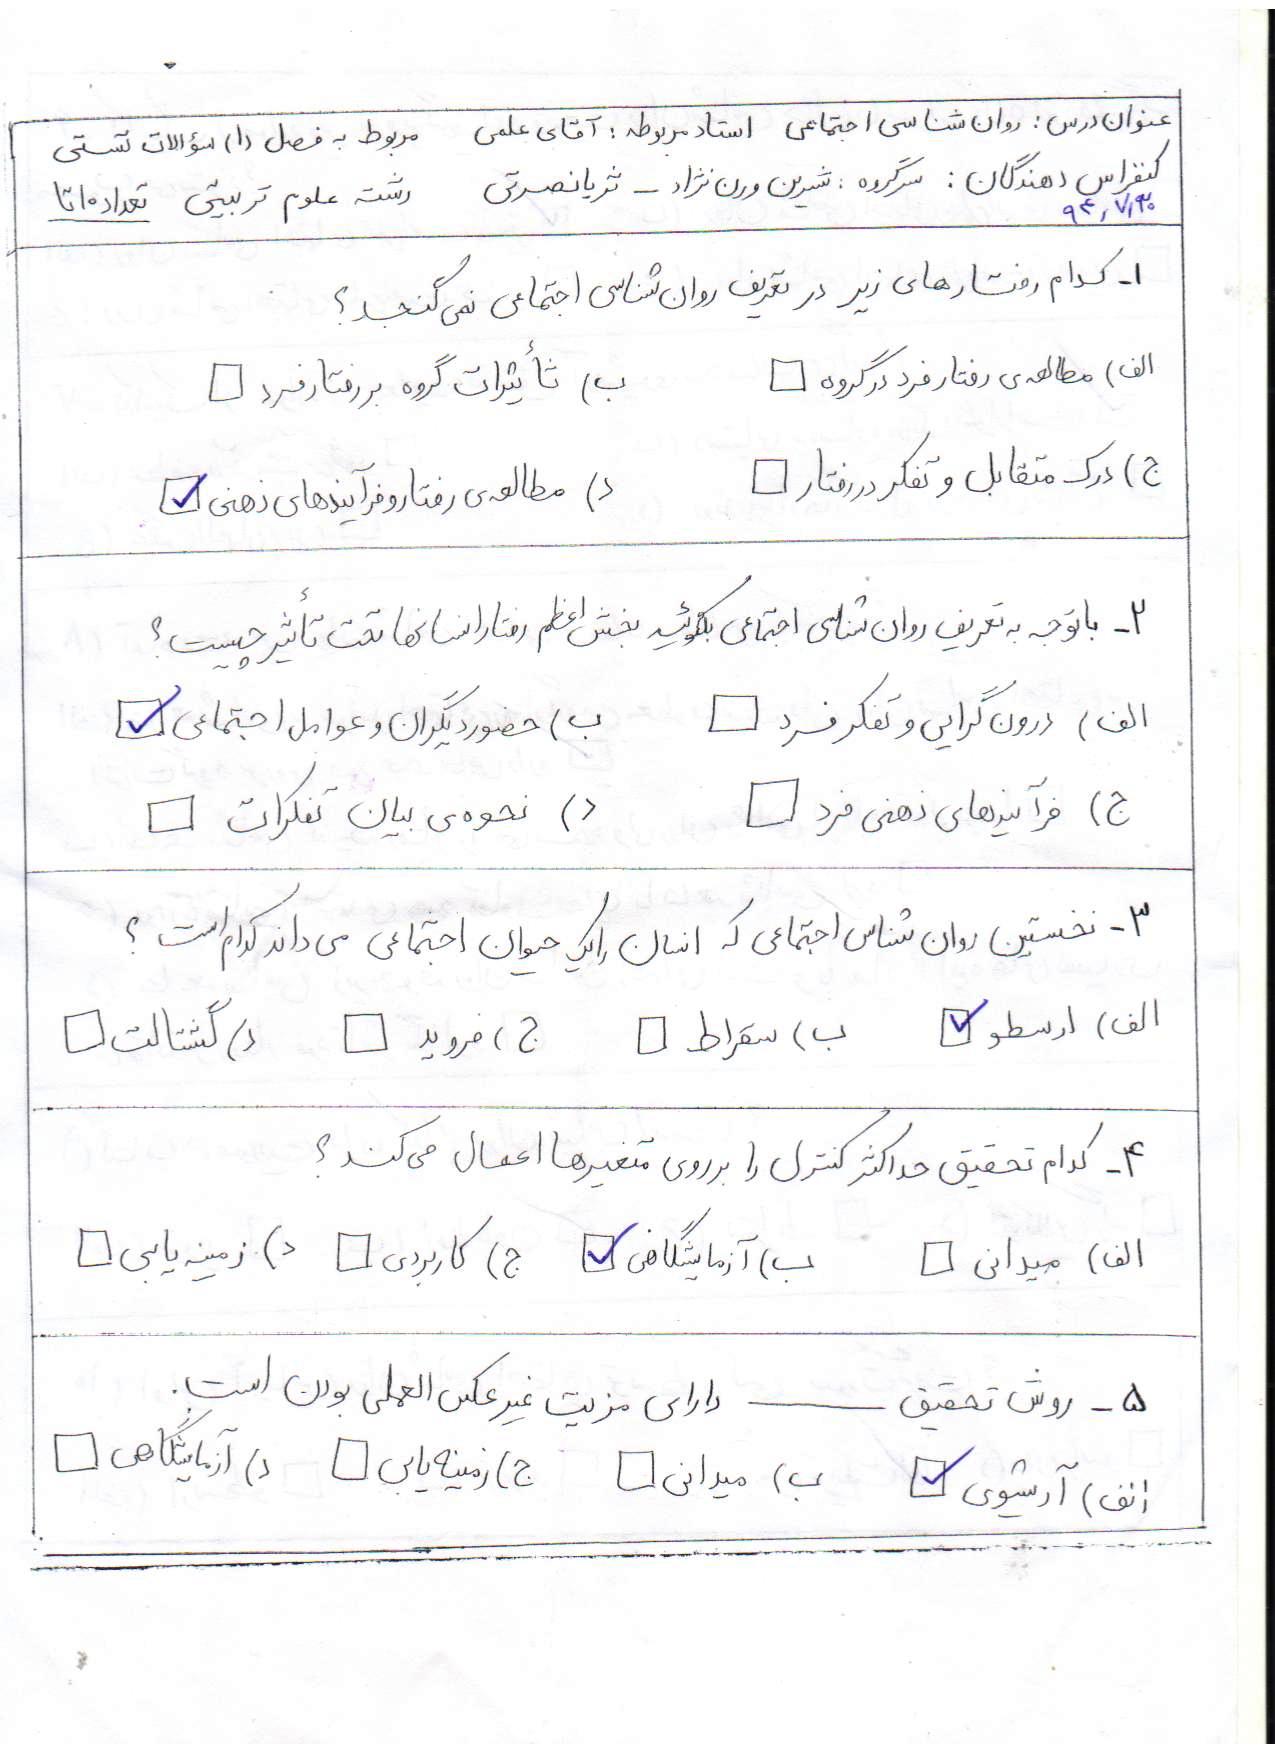 عنوان درس: روان شناسی اجتماعی استاد مربوطه: آقای علمی مربوط به فصل (۱) سؤالات تستی
کنفراس دهندگان: سرگروه: شیرین ورن نژاد - ثریا نصرتی رشته علوم تربیتی تعداد ۱۰ تا
۹۴،۷،۳۰
۱- کدام رفتارهای زیر در تعریف روان شناسی اجتماعی نمی گنجد؟
الف) مطالعه ی رفتار فرد در گروه ب) تأثیرات گروه بر رفتار فرد
ج) درک متقابل و تفکر در رفتار د) مطالعه ی رفتار و فرآیندهای ذهنی
۲- با توجه به تعریف روان شناسی اجتماعی بگوئید بخش اعظم رفتار انسانها تحت تأثیر چیست؟
الف) درون گرایی و تفکر فرد ب) حضور دیگران و عوامل اجتماعی
ج) فرآیندهای ذهنی فرد د) نحوه ی بیان تفکرات
۳- نخستین روان شناس اجتماعی که انسان را یک حیوان اجتماعی می داند کدام است؟
الف) ارسطو ب) سقراط ج) فروید د) گشتالت
۴- کدام تحقیق حداکثر کنترل را بر روی متغیرها اعمال می کند؟
الف) میدانی ب) آزمایشگاهی ج) کاربردی د) زمینه یابی
۵- روش تحقیق ـــــــــ دارای مزیت غیر عکس العملی بودن است.
الف) آرشیوی ب) میدانی ج) زمینه یابی د) آزمایشگاهی